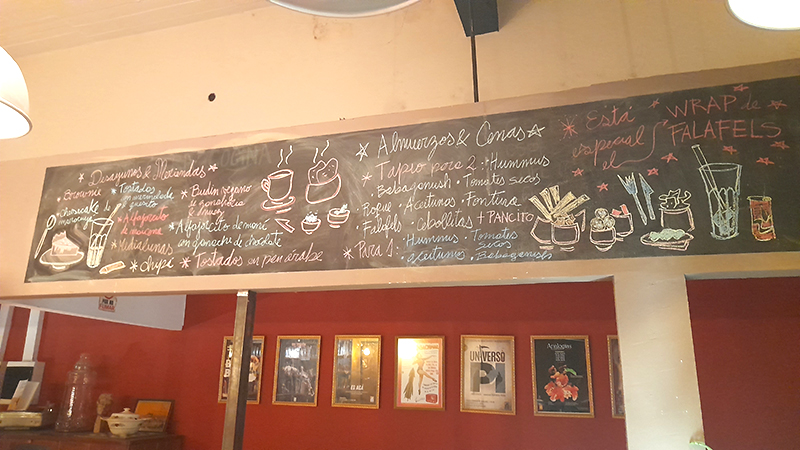 Desayunos & Meriendas
* Brownie
* Tostados
con mermelada
y queso
* cheese cake
maracuyá
* Alfajorcito
de maicena
* Medialunas
* chipá
* Budín vegano
de zanahoria
& limón
* Alfajorcito de maní
con ganache de chocolate
* Tostados en pan árabe
* Almuerzos & Cenas
* Tapeo para 2: Hummus
Babaganush · Tomates secos
Roque · Aceitunas · Fontina
Falafels · Cebollitas + PANCITO
* Para 1: Hummus · Tomates
secos
aceitunas · Babaganush
* Está
especial
el
WRAP de
FALAFELS
UNIVERSO
PI